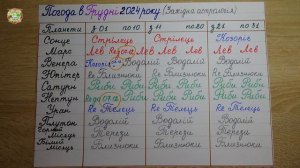 Погода в Грудні 2024 року (Західна астрологія)
Планети З 01 по 10 З 11 по 20 З 21 по 31
Сонце Стрілець Стрілець Козоріг
Марс Лев Лев Лев Лев Лев Лев
Венера Козоріг Водолій Водолій Водолій
Юпітер Re Близнюки Re Близнюки Re Близнюки
Сатурн Риби Риби Риби Риби Риби Риби
Нептун Риби Риби Риби Риби
Уран Re Телець Re Телець Re Телець
Плутон Водолій Водолій Водолій
Чорний Місяць Терези Терези Терези
Білий Місяць Близнюки Близнюки Близнюки